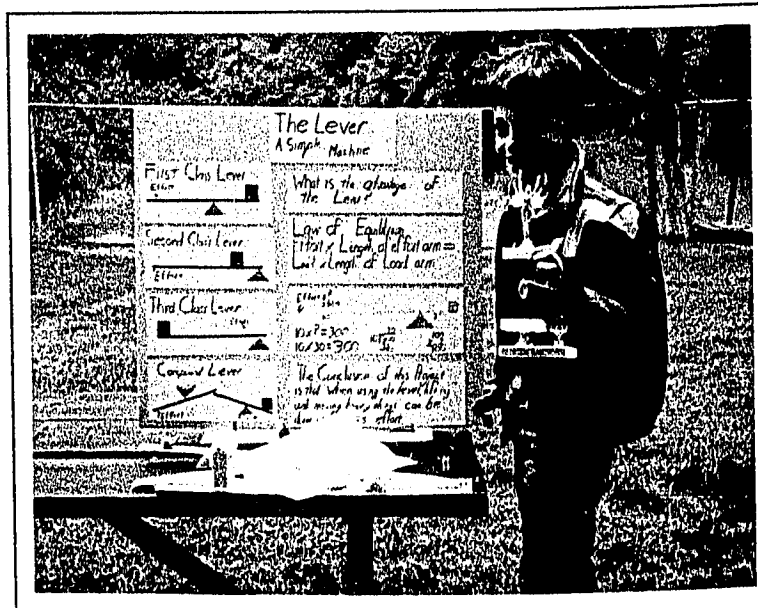 The Lever
A Simple Machine
First Class Lever
Effort
Second Class Lever
Effort
Third Class Lever
Compound Lever
Effort
What is the of
the Lever
Law of
Effort x Length of effort arm =
Load x Length of Load arm
10x?=300
10x30=300
The Conclusion of this Project
is that when using the lever, lifting
and moving heavy objects can be
effort